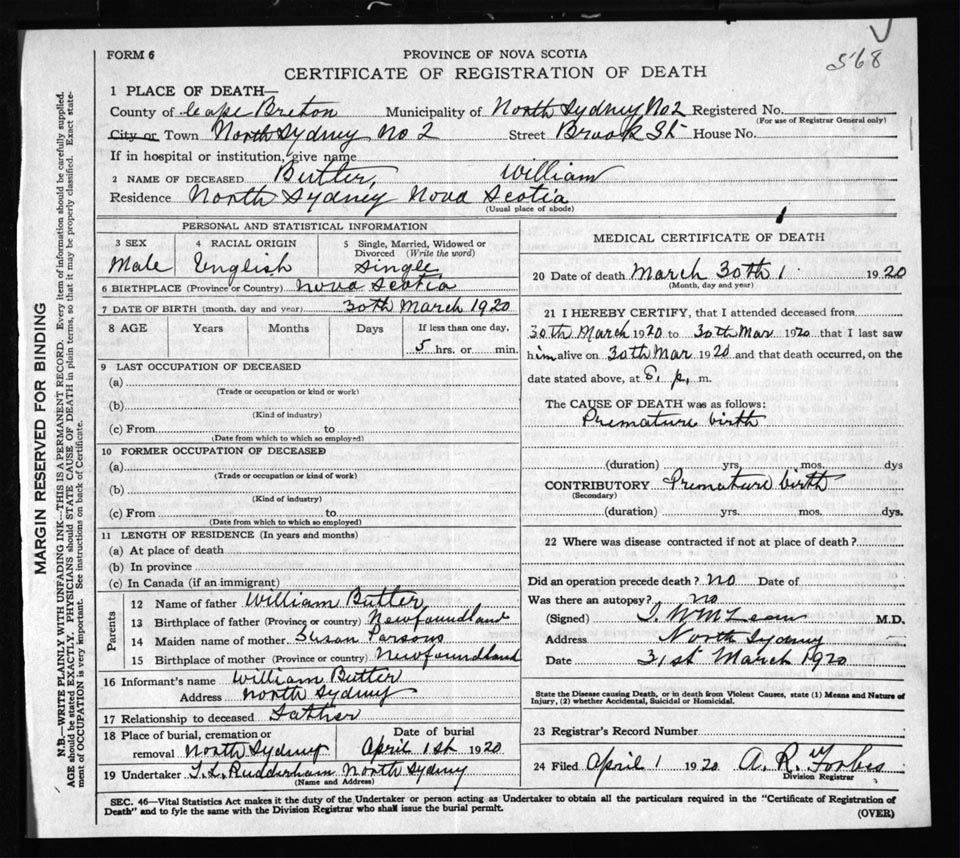 568
FORM 6 PROVINCE OF NOVA SCOTIA
CERTIFICATE OF REGISTRATION OF DEATH
1 PLACE OF DEATH—
County of Cape Breton Municipality of North Sydney No 2 Registered No.
(For use of Registrar General only)
City or Town North Sydney No 2 Street Brook St House No.
If in hospital or institution, give name
2 NAME OF DECEASED Butler, William
Residence North Sydney Nova Scotia
(Usual place of abode)
PERSONAL AND STATISTICAL INFORMATION
3 SEX 4 RACIAL ORIGIN 5 Single, Married, Widowed or Divorced (Write the word)
Male English Single
6 BIRTHPLACE (Province or Country) Nova Scotia
7 DATE OF BIRTH (month, day and year) 30th March 1920
8 AGE Years Months Days If less than one day,
5 hrs. or min.
9 LAST OCCUPATION OF DECEASED
(a)
(Trade or occupation or kind or work)
(b)
(Kind of industry)
(c) From to
(Date from which to which so employed)
10 FORMER OCCUPATION OF DECEASED
(a)
(Trade or occupation or kind of work)
(b)
(Kind of industry)
(c) From to
(Date from which to which so employed)
11 LENGTH OF RESIDENCE (In years and months)
(a) At place of death
(b) In province
(c) In Canada (if an immigrant)
Parents
12 Name of father William Butler
13 Birthplace of father (Province or country) Newfoundland
14 Maiden name of mother Susan Parsons
15 Birthplace of mother (Province or country) Newfoundland
16 Informant's name William Butler
Address North Sydney
17 Relationship to deceased Father
18 Place of burial, cremation or Date of burial
removal North Sydney April 1st 1920
19 Undertaker T. L. Rudderham North Sydney
(Name and Address)
MEDICAL CERTIFICATE OF DEATH
20 Date of death March 30th 1920
(Month, day and year)
21 I HEREBY CERTIFY, that I attended deceased from
30th March 1920 to 30th Mar 1920 that I last saw
him alive on 30th Mar 1920 and that death occurred, on the
date stated above, at p. m.
The CAUSE OF DEATH was as follows:
Premature birth
(duration) yrs. mos. dys
CONTRIBUTORY Premature birth
(Secondary)
(duration) yrs. mos. dys.
22 Where was disease contracted if not at place of death?
Did an operation precede death? no Date of
Was there an autopsy? no
(Signed) McLean M.D.
Address North Sydney
Date 31st March 1920
State the Disease causing Death, or in death from Violent Causes, state (1) Means and Nature of
Injury, (2) whether Accidental, Suicidal or Homicidal.
23 Registrar's Record Number
24 Filed April 1 1920 A. R. Forbes
Division Registrar
SEC. 46—Vital Statistics Act makes it the duty of the Undertaker or person acting as Undertaker to obtain all the particulars required in the "Certificate of Registration of
Death" and to fyle the same with the Division Registrar who shall issue the burial permit.
(OVER)
MARGIN RESERVED FOR BINDING
N.B.—WRITE PLAINLY WITH UNFADING INK—THIS IS A PERMANENT RECORD. Every item of information should be carefully supplied.
AGE should be stated EXACTLY. PHYSICIANS should STATE CAUSE OF DEATH in plain terms, so that it may be properly classified. Exact state-
ment of OCCUPATION is very important. See instructions on back of Certificate.